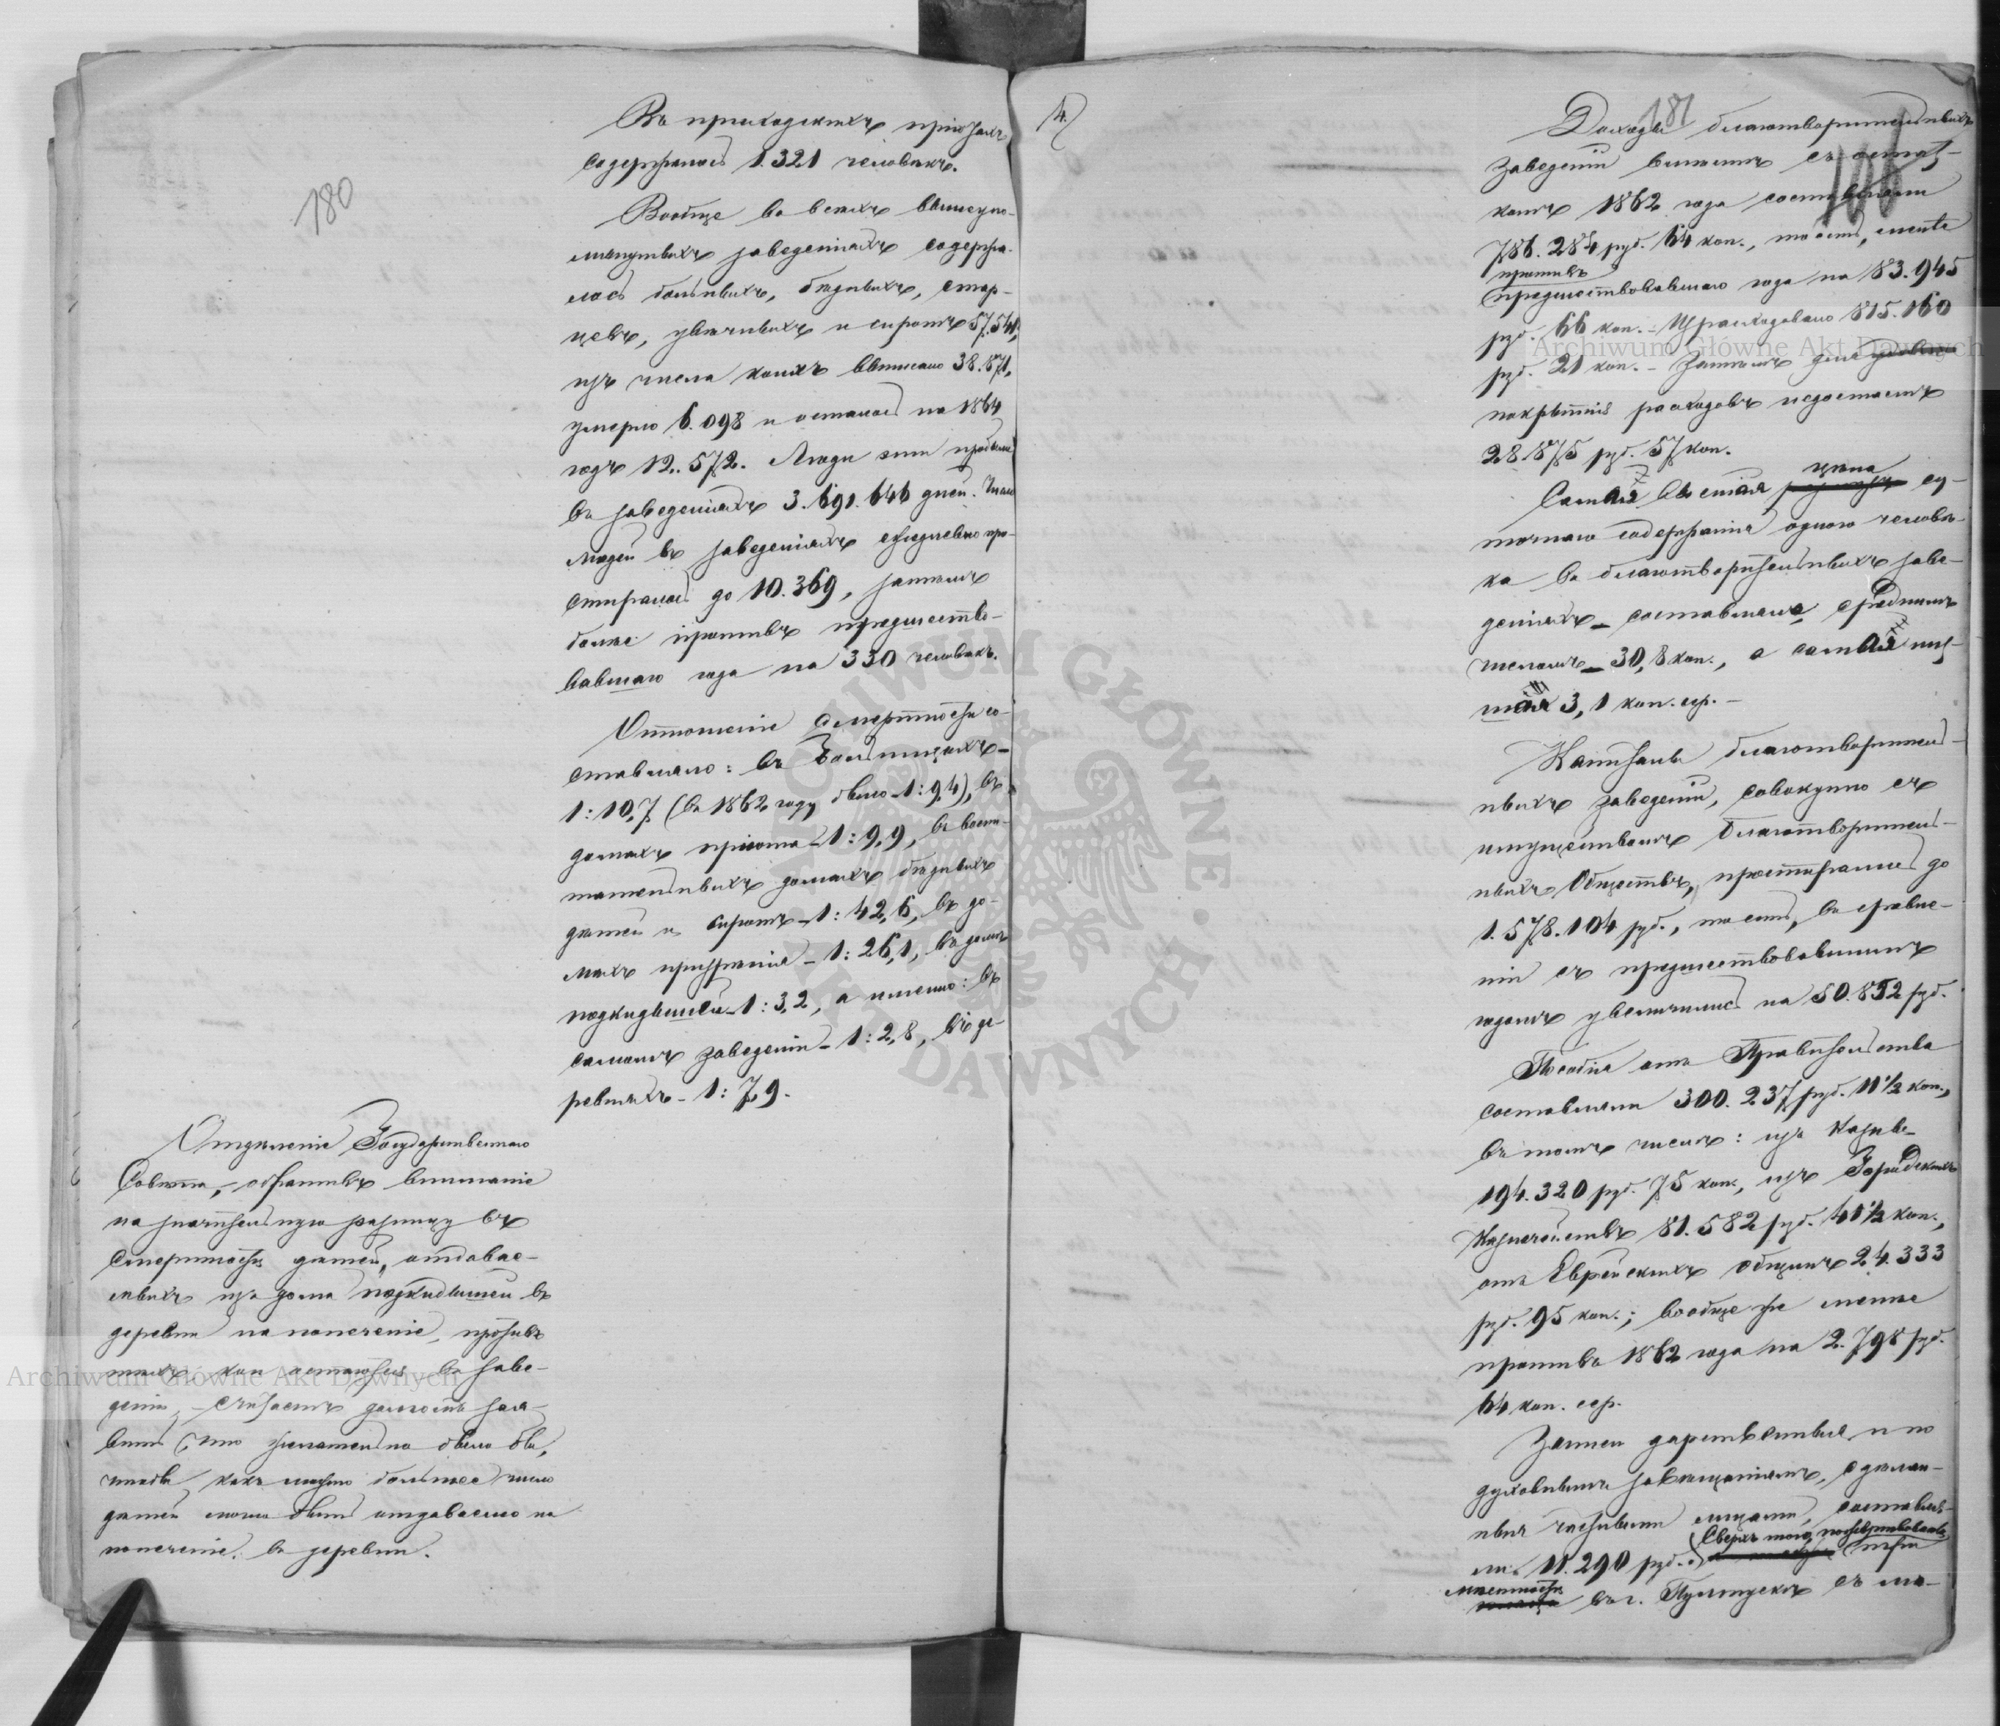 180
Въ приходскихъ пріютахъ
содержалось 1.321 человѣкъ.
Вообще во всѣхъ вышеупо-
мянутыхъ заведеніяхъ содержа-
лось больныхъ, бѣдныхъ, стар-
цевъ, увѣчныхъ и сиротъ 57.541,
изъ числа коихъ выписано 38.871,
умерло 6.098 и осталось на 1864
годъ 12.572. Люди эти пробыли
въ заведеніяхъ 3.691.646 дней. Число
людей въ заведеніяхъ ежедневно про-
стиралось до 10.369, затѣмъ
болѣе противъ предшество-
вавшаго года на 330 человѣкъ.
Отношеніе смертности со-
ставляло: въ больницахъ –
1:10,7 (въ 1862 году было – 1:9,4), въ
домахъ пріюта – 1:9,9, въ воспи-
тательныхъ домахъ бѣдныхъ
дѣтей и сиротъ – 1:42,6, въ до-
махъ призрѣнія – 1:26,1, въ домѣ
подкидышей – 1:3,2, а именно: въ
самомъ заведеніи – 1:2,8, въ де-
ревняхъ – 1:7,9.
Отдѣленіе Государственнаго
Совѣта, обративъ вниманіе
на значительную разницу въ
смертности дѣтей, отдавае-
мыхъ изъ дома подкидышей въ
деревни на попеченіе, противъ
тѣхъ, кои остаются въ заве-
деніи, – считаетъ долгомъ зая-
вить, что желательно было бы,
чтобы какъ можно большее число
дѣтей могло быть отдаваемо на
попеченіе въ деревни.
4.
181
Доходы благотворительныхъ
заведеній вмѣстѣ съ остат-
комъ 1862 года составляли
786.284 руб. 64 коп., то есть, менѣе
противъ
предшествовавшаго года на 83.945
руб. 66 коп. – Израсходовано 815.160
руб. 21 коп. – Затѣмъ для
покрытія расходовъ недостаетъ
28.875 руб. 57 коп.
цѣна
Самая высшая су-
точнаго содержанія одного человѣ-
ка въ благотворительныхъ заве-
деніяхъ – составляла, среднимъ
числомъ – 30,8 коп., а самая низ-
шая 3,1 коп. сер. –
Капиталы благотворитель-
ныхъ заведеній, совокупно съ
имуществомъ благотворитель-
ныхъ Обществъ, простирались до
1.578.104 руб., то есть, въ сравне-
ніи съ предшествовавшимъ
годомъ увеличились на 50.852 руб.
Пособія отъ Правительства
составляли 300.237 руб. 11½ коп.,
въ томъ числѣ: изъ Казны –
194.320 руб. 75 коп., изъ Городскихъ
Казначействъ 81.582 руб. 41½ коп.,
отъ Еврейскихъ общинъ 24.333
руб. 95 коп.; вообще же менѣе
противъ 1862 года на 2.798 руб.
64 коп. сер.
Записи дарственныя и по
духовнымъ завѣщаніямъ, сдѣлан-
ныя частными лицами, составля-
Сверхъ того, пожертвованы
ли 11.290 руб. три
мѣстности
въ г. Пултускѣ съ ма-
Archiwum Główne Akt Dawnych
Archiwum Główne Akt Dawnych
ARCHIWUM GŁÓWNE AKT DAWNYCH